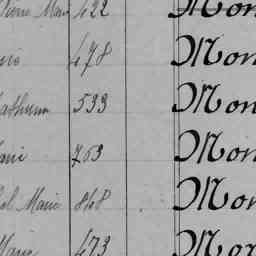 Pierre Marie 422 Mon
478 Mon
Mathurin 533 Mon
763 Mon
Marie 868 Mon
Marie 473 Mon